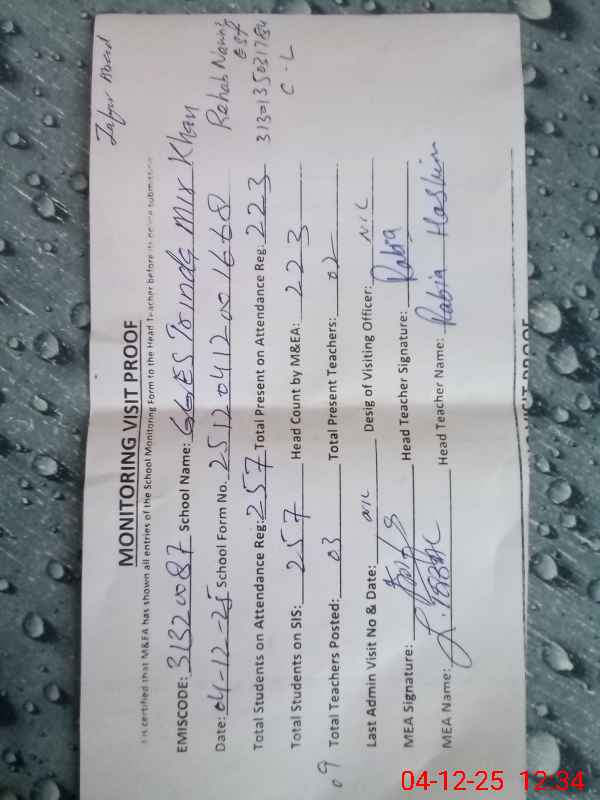 Zafar Abad
MONITORING VISIT PROOF
It is certified that M&EA has shown all entries of the School Monitoring Form to the Head Teacher before its online submission
EMISCODE: 31320087 School Name: GGES Tounde Mir Khan
Date: 04-12-25 School Form No. 251204120016 68 Rehab Nawaz
EST
Total Students on Attendance Reg: 257 Total Present on Attendance Reg: 223 3130135031784
Total Students on SIS: 257 Head Count by M&EA: 223 C.L
09 Total Teachers Posted: 03 Total Present Teachers: 02
Last Admin Visit No & Date: NIL Desig of Visiting Officer: NIL
MEA Signature: Head Teacher Signature: Rabia
MEA Name: Head Teacher Name: Rabia Hashim
VISIT PROOF
04-12-25 12:34